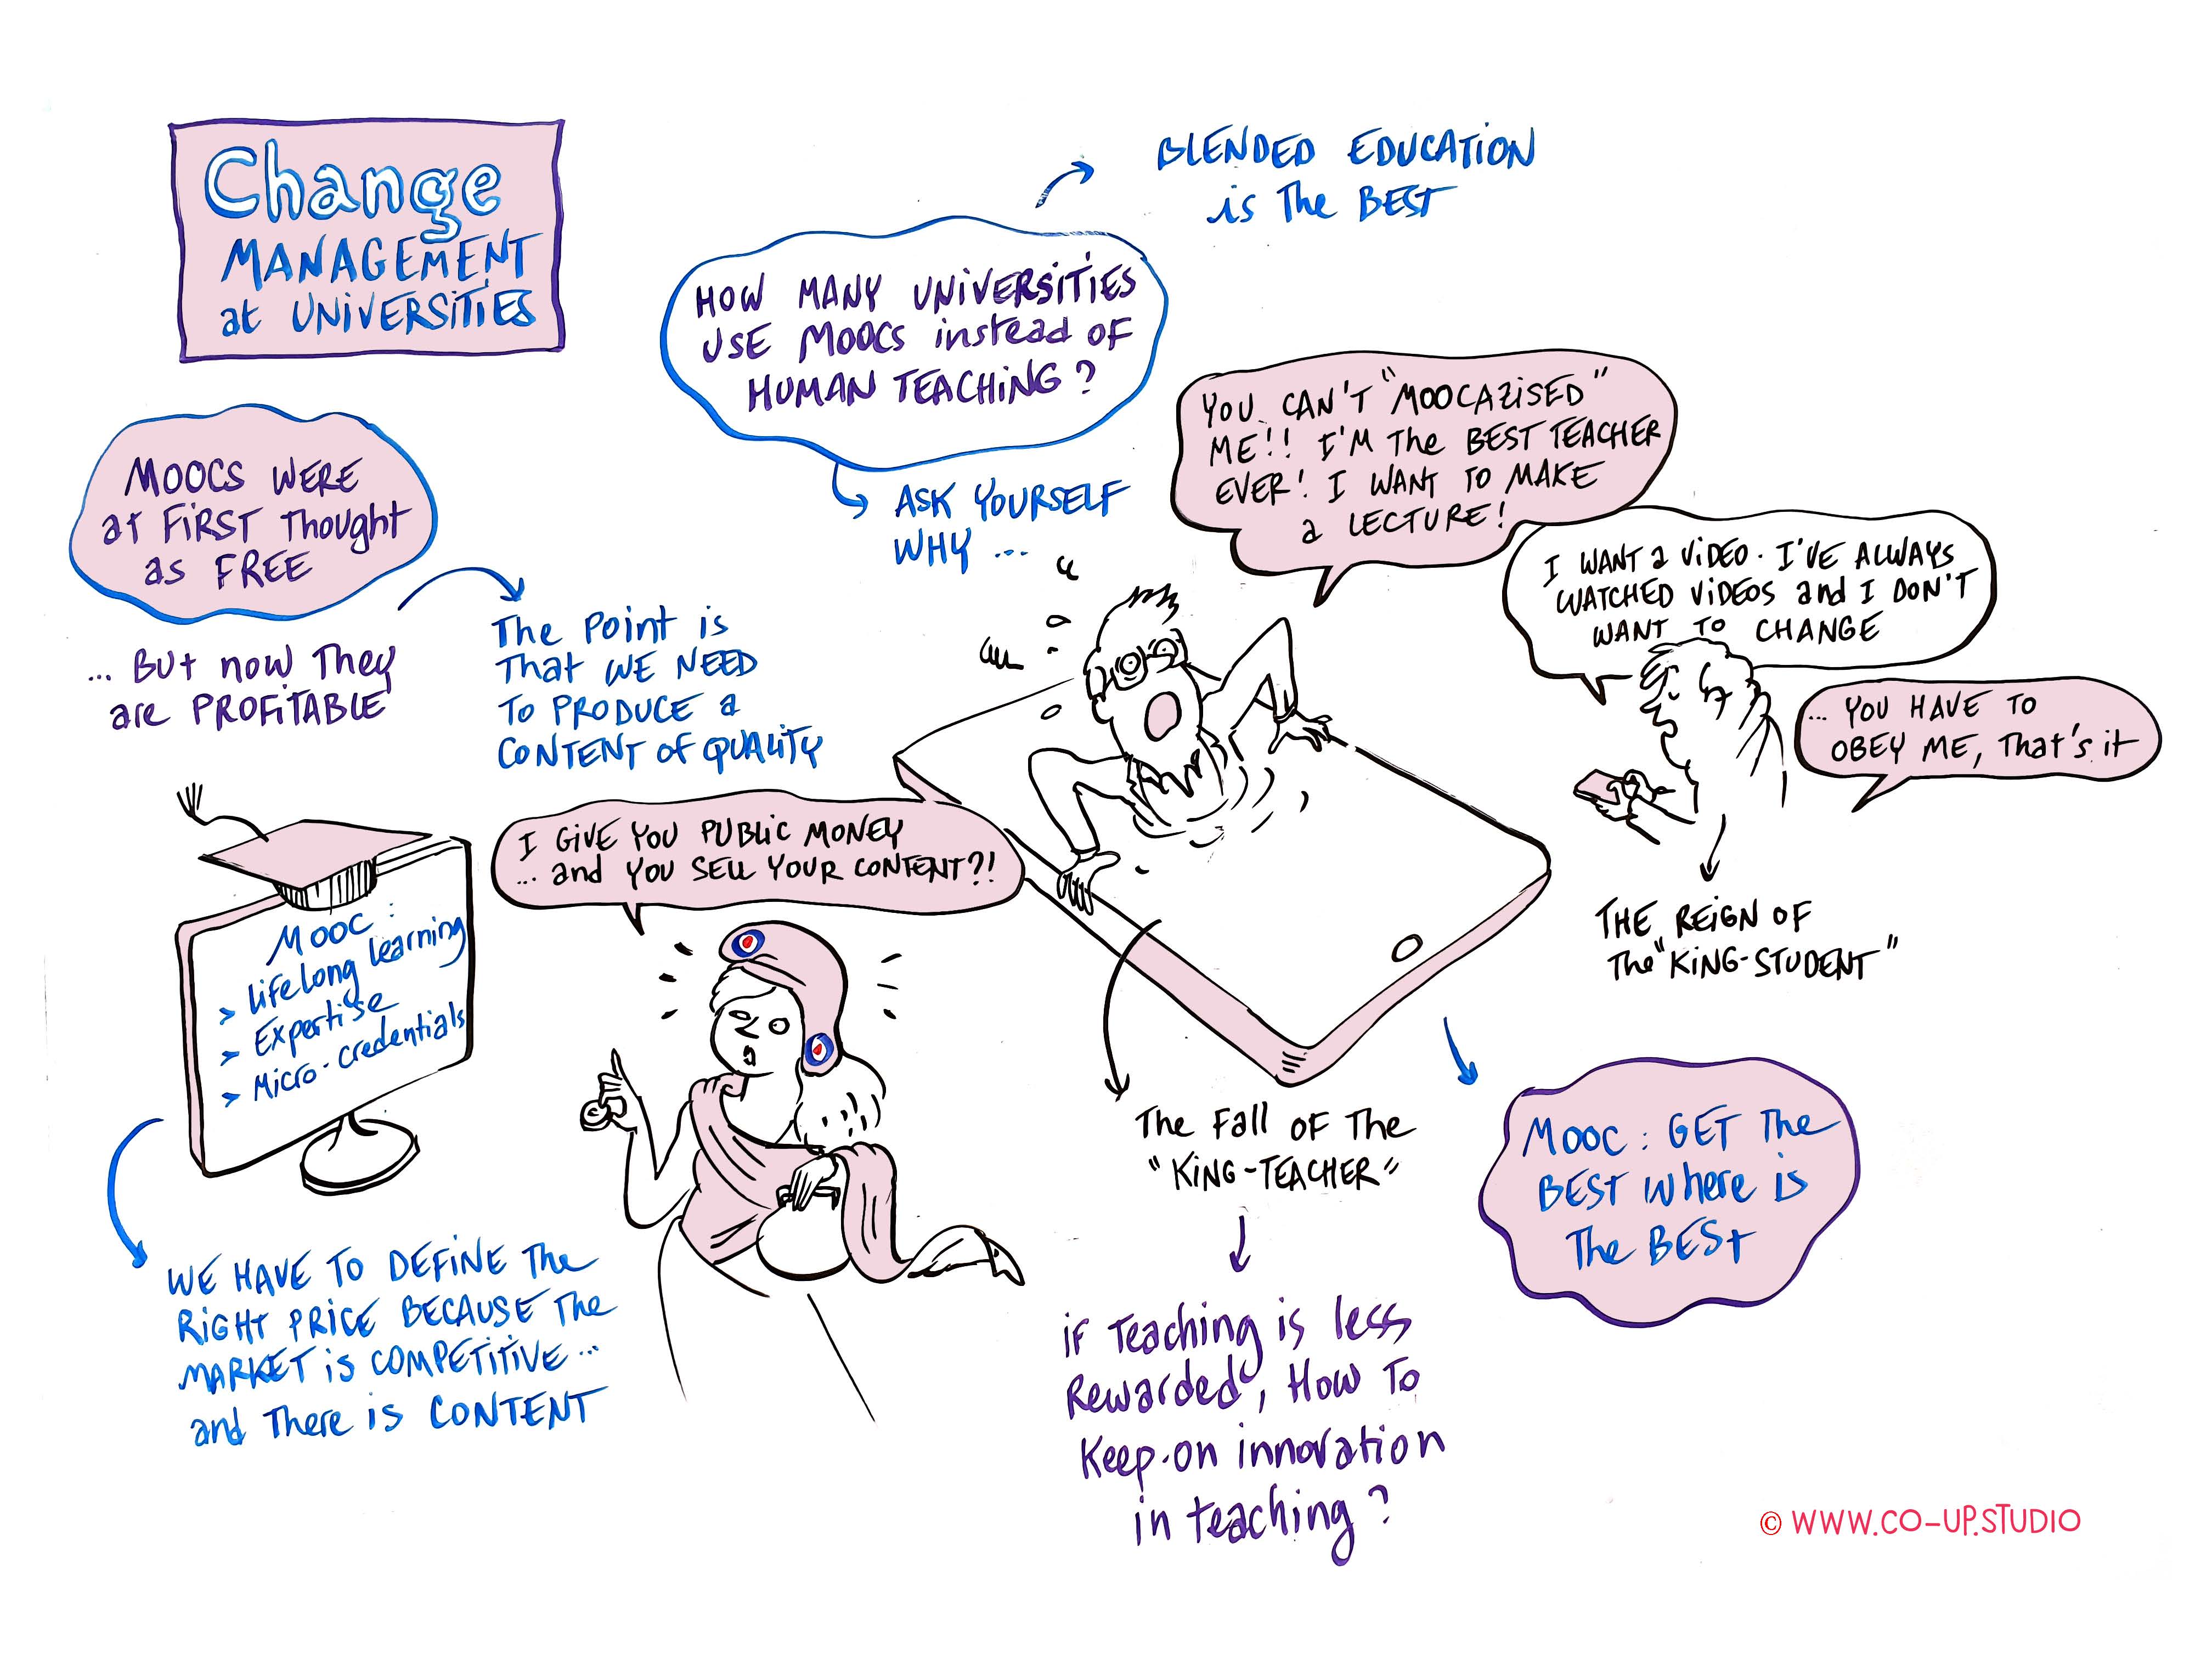 Change
MANAGEMENT
at UNIVERSITIES
BLENDED EDUCATION
is The BEST
HOW MANY UNIVERSITIES
USE MOOCS instead OF
HUMAN TEACHING?
ASK YOURSELF
WHY ...
MOOCS WERE
at FIRST Thought
as FREE
... But now They
are PROFITABLE
The Point is
That WE NEED
TO PRODUCE a
CONTENT of QUALITY
YOU CAN'T "MOOCAZISED"
ME!! I'M The BEST TEACHER
EVER! I WANT TO MAKE
a LECTURE!
I WANT a VIDEO. I'VE ALWAYS
WATCHED VIDEOS and I DON'T
WANT TO CHANGE
... YOU HAVE TO
OBEY ME, That's it
THE REIGN OF
The "KING-STUDENT"
MOOC:
> Lifelong learning
> Expertise
> Micro-credentials
I GIVE YOU PUBLIC MONEY
... and YOU SELL YOUR CONTENT?!
WE HAVE TO DEFINE The
RIGHT PRICE BECAUSE The
MARKET is COMPETITIVE...
and There is CONTENT
The Fall OF The
"KING-TEACHER"
iF Teaching is less
Rewarded, How To
Keep-on innovation
in teaching?
MOOC: GET The
BEST Where is
The BEST
© WWW.CO-UP.STUDIO